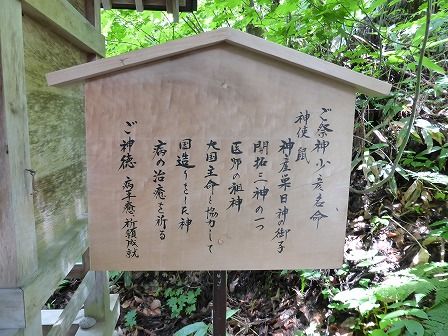 ご祭神 少彦名命
神使 鼠
神産巣日神の御子
開拓三神の一つ
医師の祖神
大国主命と協力して
国造りをした神
病の治癒を祈る
ご神徳 病平癒・祈願成就